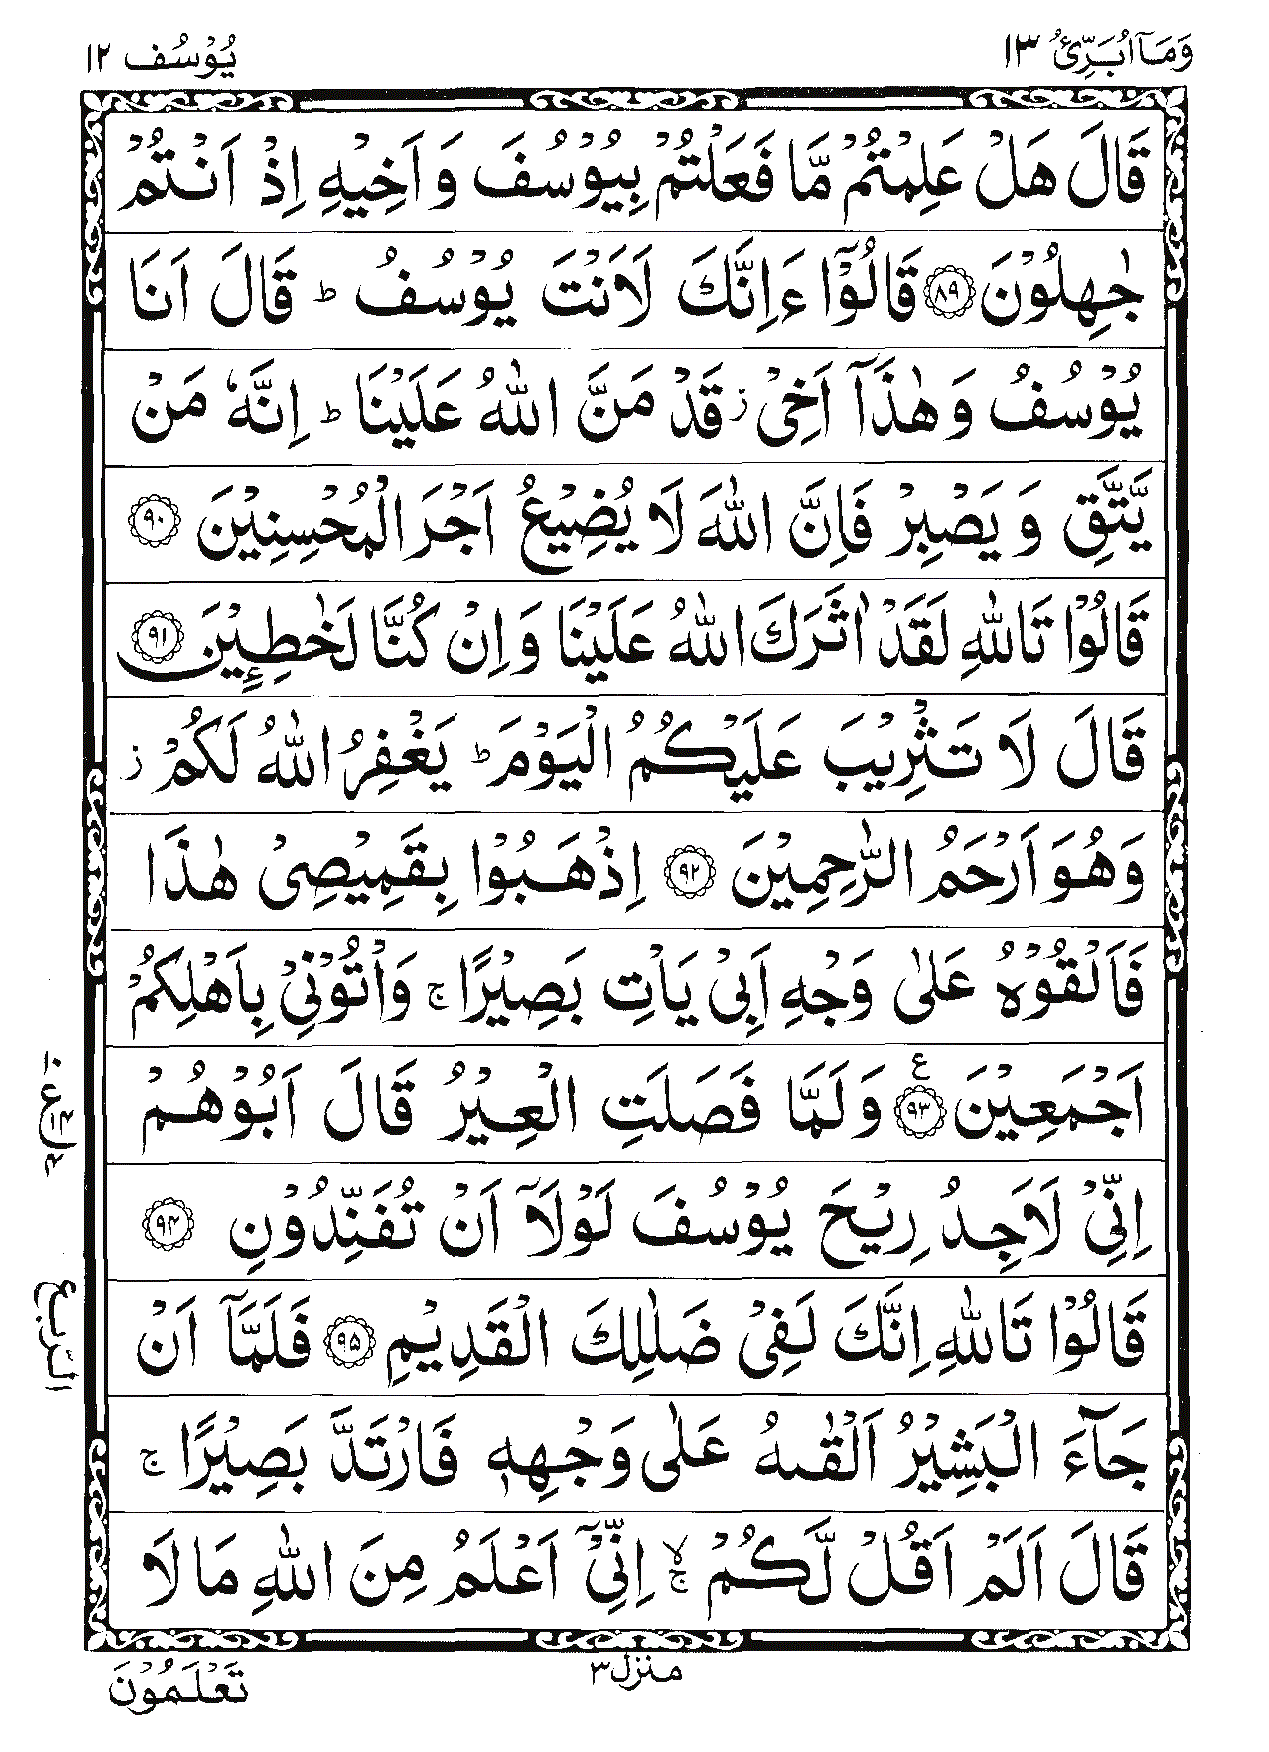 وَمَاۤ اُبَرِّئُ ١٣
يُوْسُف ١٢
قَالَ هَلْ عَلِمْتُمْ مَّا فَعَلْتُمْ بِيُوْسُفَ وَاَخِيْهِ اِذْ اَنْتُمْ
جٰهِلُوْنَ ﴿۸۹﴾ قَالُوْۤا ءَاِنَّكَ لَاَنْتَ يُوْسُفُ ؕ قَالَ اَنَا
يُوْسُفُ وَهٰذَاۤ اَخِيْ ؗ قَدْ مَنَّ اللّٰهُ عَلَيْنَا ؕ اِنَّهٗ مَنْ
يَّتَّقِ وَ يَصْبِرْ فَاِنَّ اللّٰهَ لَا يُضِيْعُ اَجْرَ الْمُحْسِنِيْنَ ﴿۹۰﴾
قَالُوْا تَاللّٰهِ لَقَدْ اٰثَرَكَ اللّٰهُ عَلَيْنَا وَاِنْ كُنَّا لَخٰطِـِٕيْنَ ﴿۹۱﴾
قَالَ لَا تَثْرِيْبَ عَلَيْكُمُ الْيَوْمَ ؕ يَغْفِرُ اللّٰهُ لَكُمْ ؗ
وَهُوَ اَرْحَمُ الرّٰحِمِيْنَ ﴿۹۲﴾ اِذْهَبُوْا بِقَمِيْصِيْ هٰذَا
فَاَلْقُوْهُ عَلٰى وَجْهِ اَبِيْ يَاْتِ بَصِيْرًا ۚ وَاْتُوْنِيْ بِاَهْلِكُمْ
اَجْمَعِيْنَ ﴿۹۳﴾ ع وَلَمَّا فَصَلَتِ الْعِيْرُ قَالَ اَبُوْهُمْ
اِنِّيْ لَاَجِدُ رِيْحَ يُوْسُفَ لَوْلَاۤ اَنْ تُفَنِّدُوْنِ ﴿۹۴﴾
قَالُوْا تَاللّٰهِ اِنَّكَ لَفِيْ ضَلٰلِكَ الْقَدِيْمِ ﴿۹۵﴾ فَلَمَّاۤ اَنْ
جَآءَ الْبَشِيْرُ اَلْقٰىهُ عَلٰى وَجْهِهٖ فَارْتَدَّ بَصِيْرًا ۚ
قَالَ اَلَمْ اَقُلْ لَّكُمْ ۙۚ اِنِّيْۤ اَعْلَمُ مِنَ اللّٰهِ مَا لَا
الرّبع
منزل ٣
تَعْلَمُوْنَ